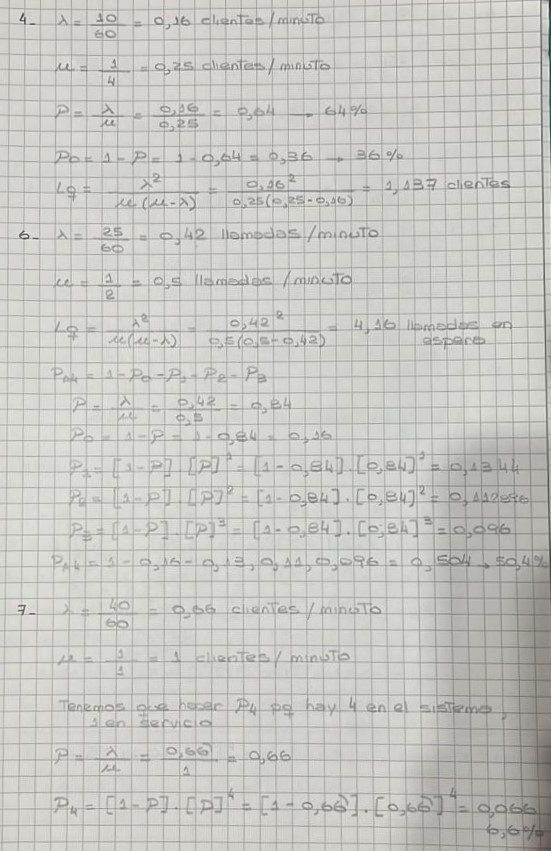 4- λ = 10/60 = 0,16 clientes/minuto
μ = 1/4 = 0,25 clientes/minuto
P = λ/μ = 0,16/0,25 = 0,64 → 64%
P0 = 1 - P = 1 - 0,64 = 0,36 → 36%
Lq = λ²/μ(μ-λ) = 0,16²/0,25(0,25-0,16) = 1,137 clientes
6- λ = 25/60 = 0,42 llamadas/minuto
μ = 1/2 = 0,5 llamadas/minuto
Lq = λ²/μ(μ-λ) = 0,42²/0,5(0,5-0,42) = 4,16 llamadas en
espera
P≥4 = 1 - P0 - P1 - P2 - P3
P = λ/μ = 0,42/0,5 = 0,84
P0 = 1 - P = 1 - 0,84 = 0,16
P1 = [1-P].[P]¹ = [1-0,84].[0,84]¹ = 0,1344
P2 = [1-P].[P]² = [1-0,84].[0,84]² = 0,112896
P3 = [1-P].[P]³ = [1-0,84].[0,84]³ = 0,096
P≥4 = 1 - 0,16 - 0,13, 0,11, 0,096 = 0,504 → 50,4%
7- λ = 40/60 = 0,66 clientes/minuto
μ = 1/1 = 1 clientes/minuto
Tenemos que hacer P4 pq hay 4 en el sistema,
1 en servicio
P = λ/μ = 0,66/1 = 0,66
P4 = [1-P].[P]⁴ = [1-0,66].[0,66]⁴ = 0,066
6,6%